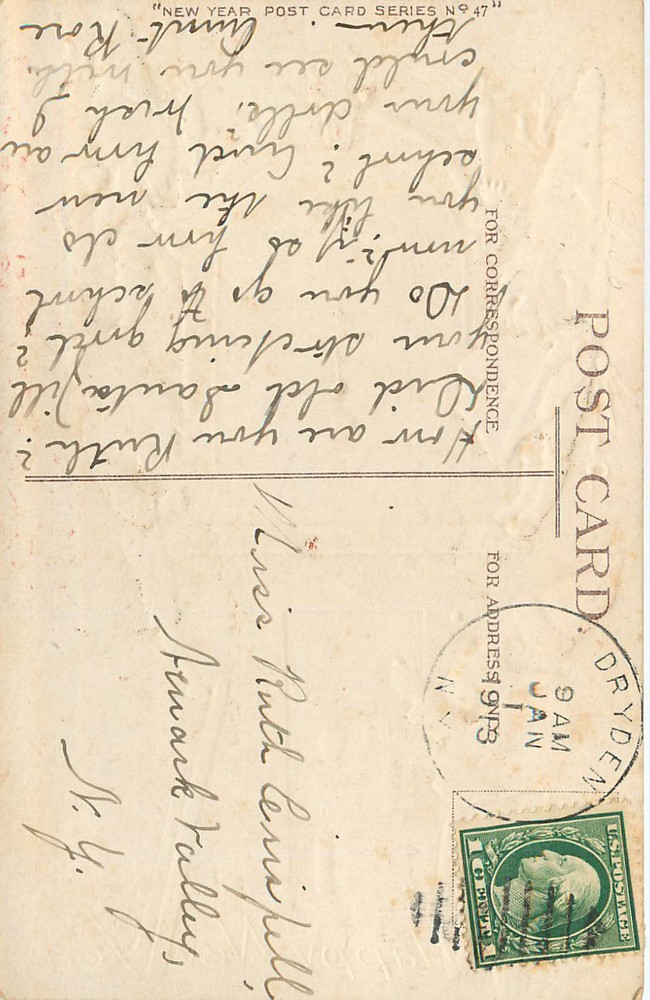 "NEW YEAR POST CARD SERIES No 47"
POST CARD.
FOR CORRESPONDENCE
How are you Ruth?
Did old Santa fill
your stocking good?
Do you go to school
now? If so how do
you like the new
school? And how are
your dolls. Wish I
could see you with
them. Aunt Rose
FOR ADDRESS ONLY
DRYDEN
9 AM
JAN
1
1913
N.Y.
U.S. POSTAGE
1 CENT 1
Miss Ruth
Newark Valley,
N.Y.